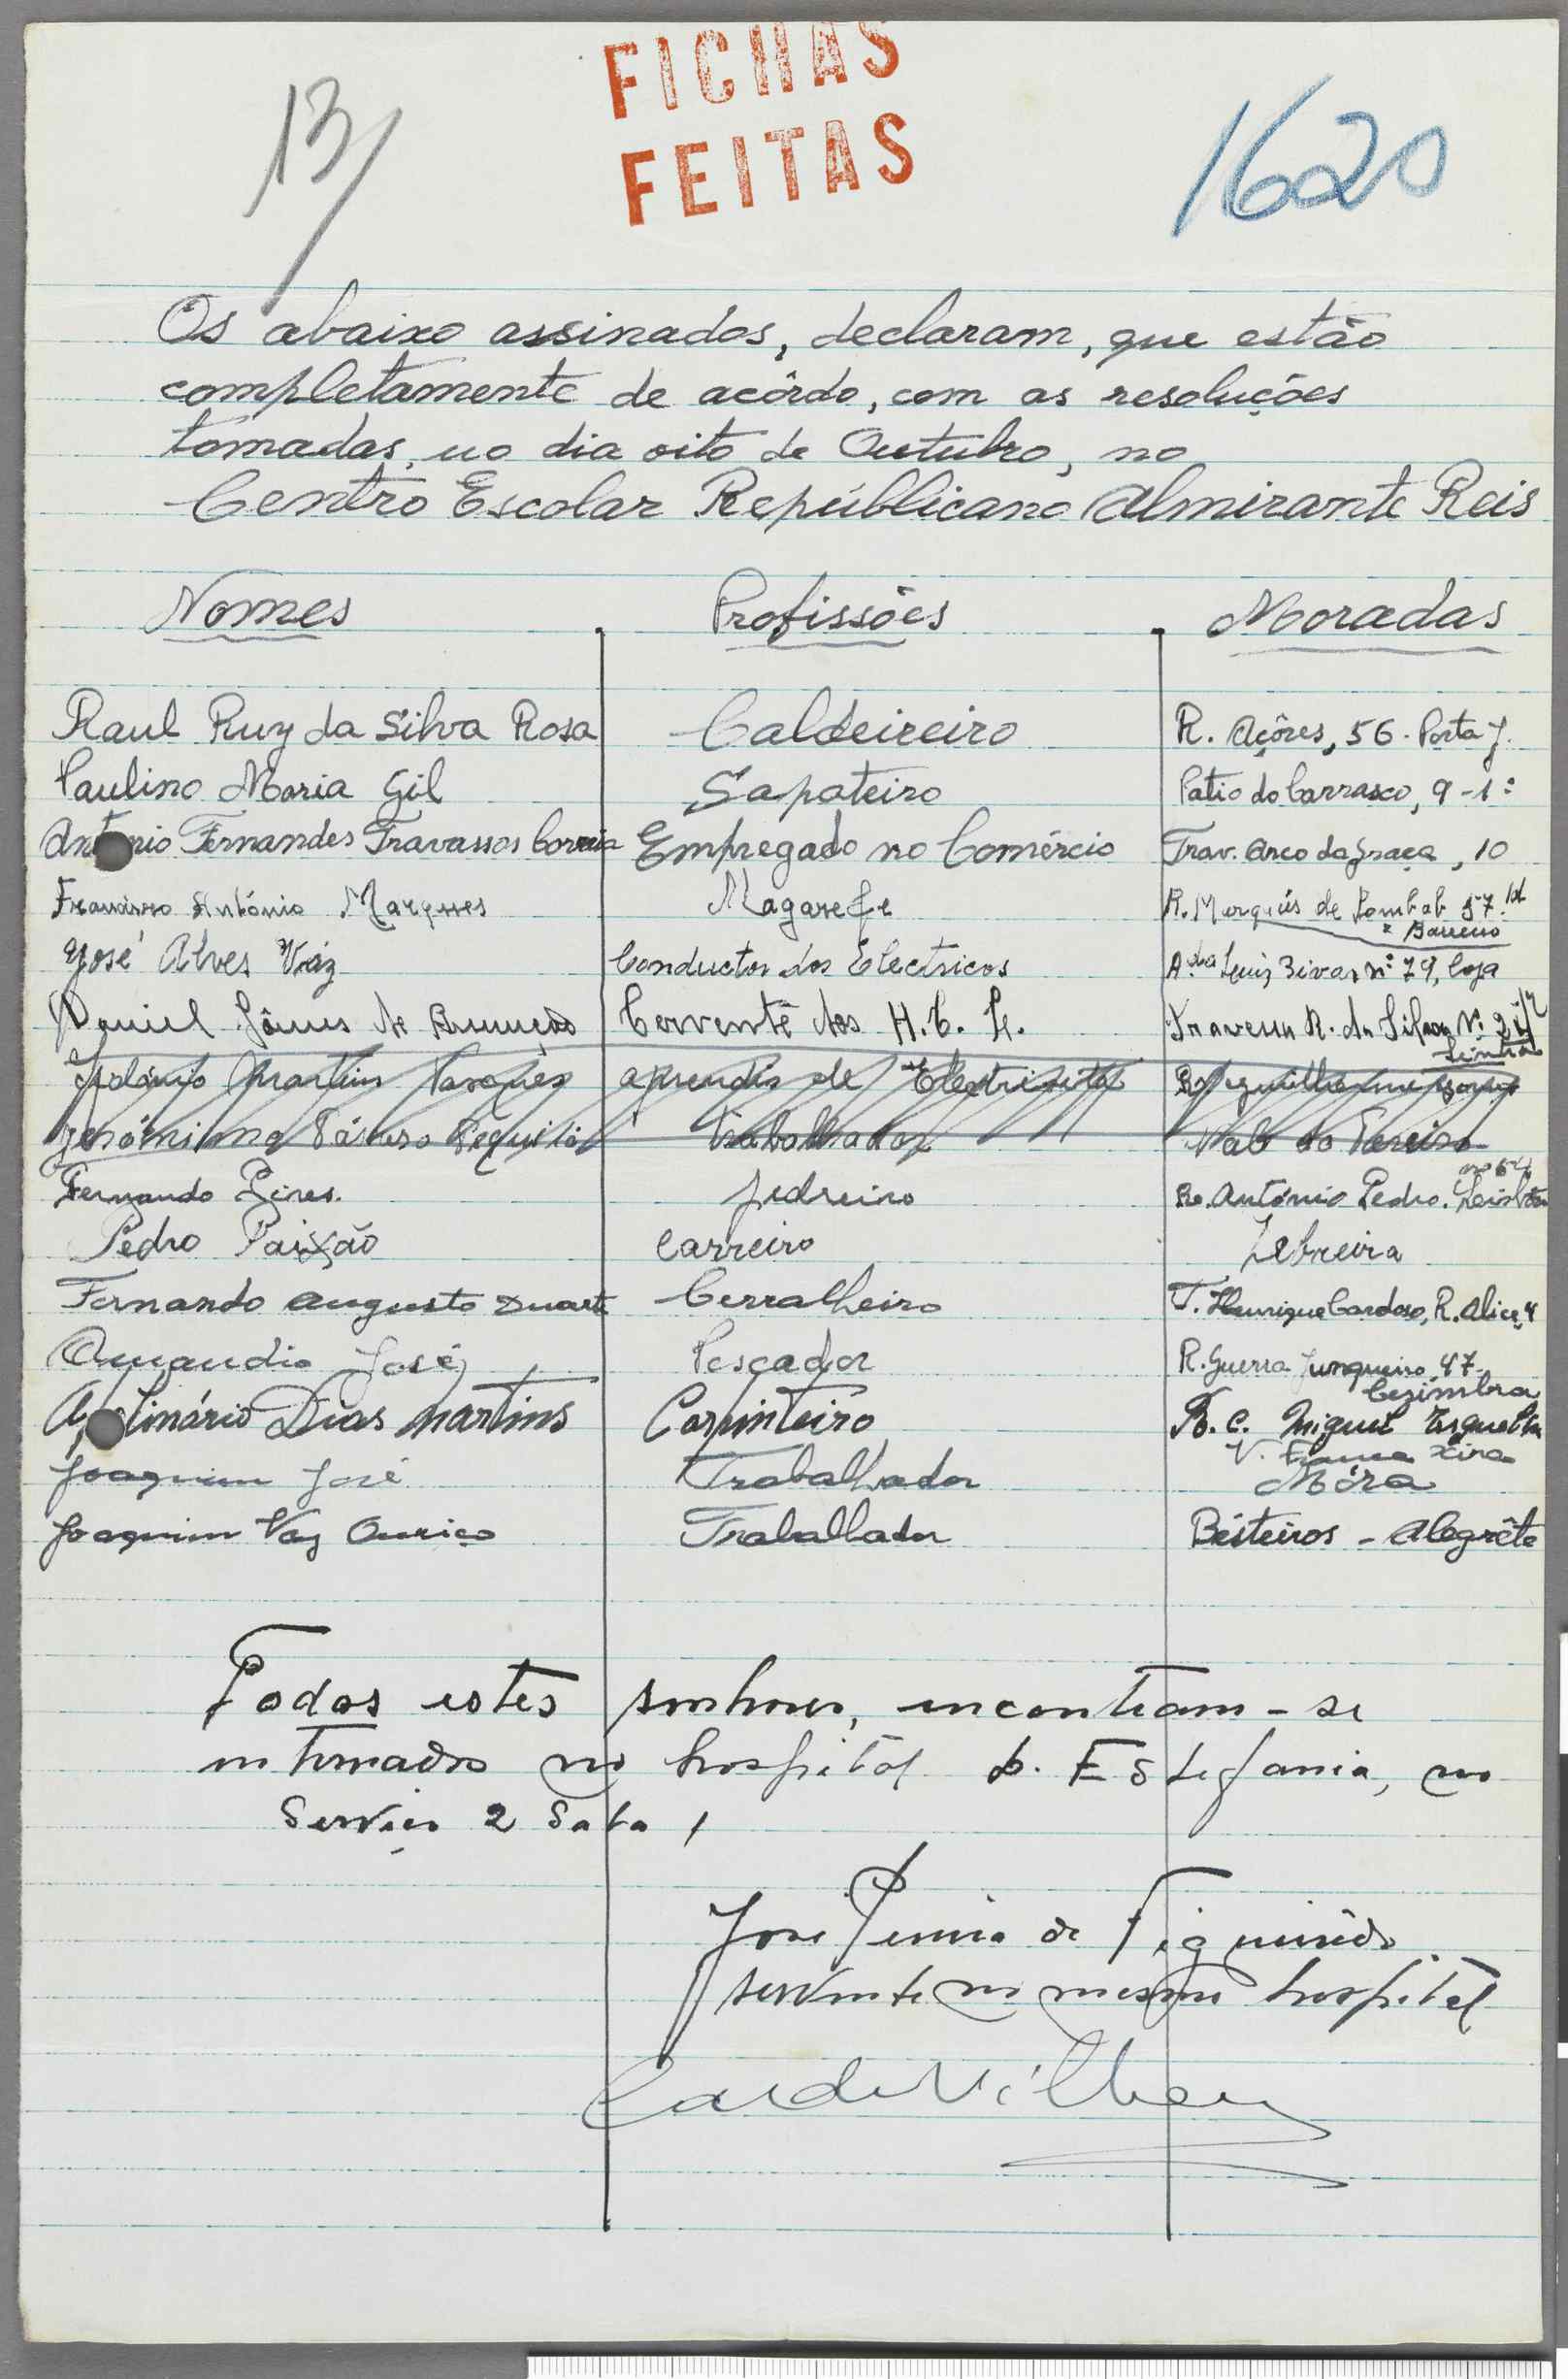 FICHAS
FEITAS
13/
1620
Os abaixo assinados, declaram, que estão
completamente de acôrdo, com as resoluções
tomadas, no dia oito de Outubro, no
Centro Escolar Repúblicano Almirante Reis
Nomes Profissões Moradas
Raul Ruy da Silva Rosa Caldeireiro R. Açôres, 56. Porta J.
Paulino Maria Gil Sapateiro Patio do Carrasco, 9-1º
António Fernandes Travassos Correia Empregado no Comércio Trav. Arco da Graça, 10
Francisco António Marques Magarefe R. Marquês de Pombal 57
Barreiro
José Alves Vaz Conductor dos Electricos Luiz Bivar nº 79, loja
Daniel Gômes de Cervente dos H.C.L. Travessa R. da Nº 2
Martins aprendiz de Electricista
Jerónimo trabalhador Vale do
Fernando Pires. pedreiro R. António Pedro. Lisboa
Pedro Paixão Carreiro Zebreira
Fernando Augusto Duarte Cerralheiro T. Henrique Cardoso, R. Alice, 4
José Pescador R. Guerra Junqueiro, 47
Cezimbra
Apolinário Dias Martins Carpinteiro B. C. Miguel Esguelha
V. Franca Xira
Joaquim José Trabalhador Móra
Joaquim Vaz Ouriço Trabalhador Bésteiros - Alegrête
Todos estes senhores, encontram-se
internados no hospital D. Estefania, no
Serviço 2 Sala 1
José Pereira de Figueirêdo
servente no mesmo hospital